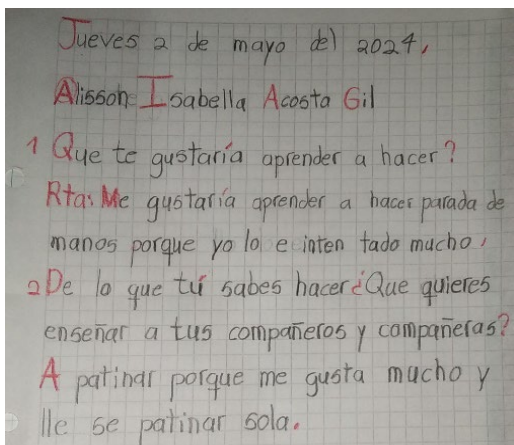 Jueves 2 de mayo del 2024,
Alisson Isabella Acosta Gil
1 Que te gustaría aprender a hacer?
Rta: Me gustaría aprender a hacer parada de
manos porque yo lo e inten tado mucho,
2 De lo que tú sabes hacer ¿Que quieres
enseñar a tus compañeros y compañeras?
A patinar porque me gusta mucho y
lle se patinar sola.